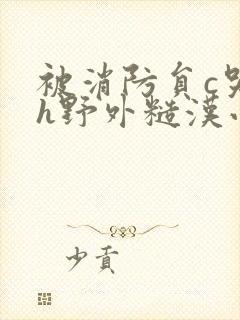 被消防负c哭
h野外糙汉
少贡